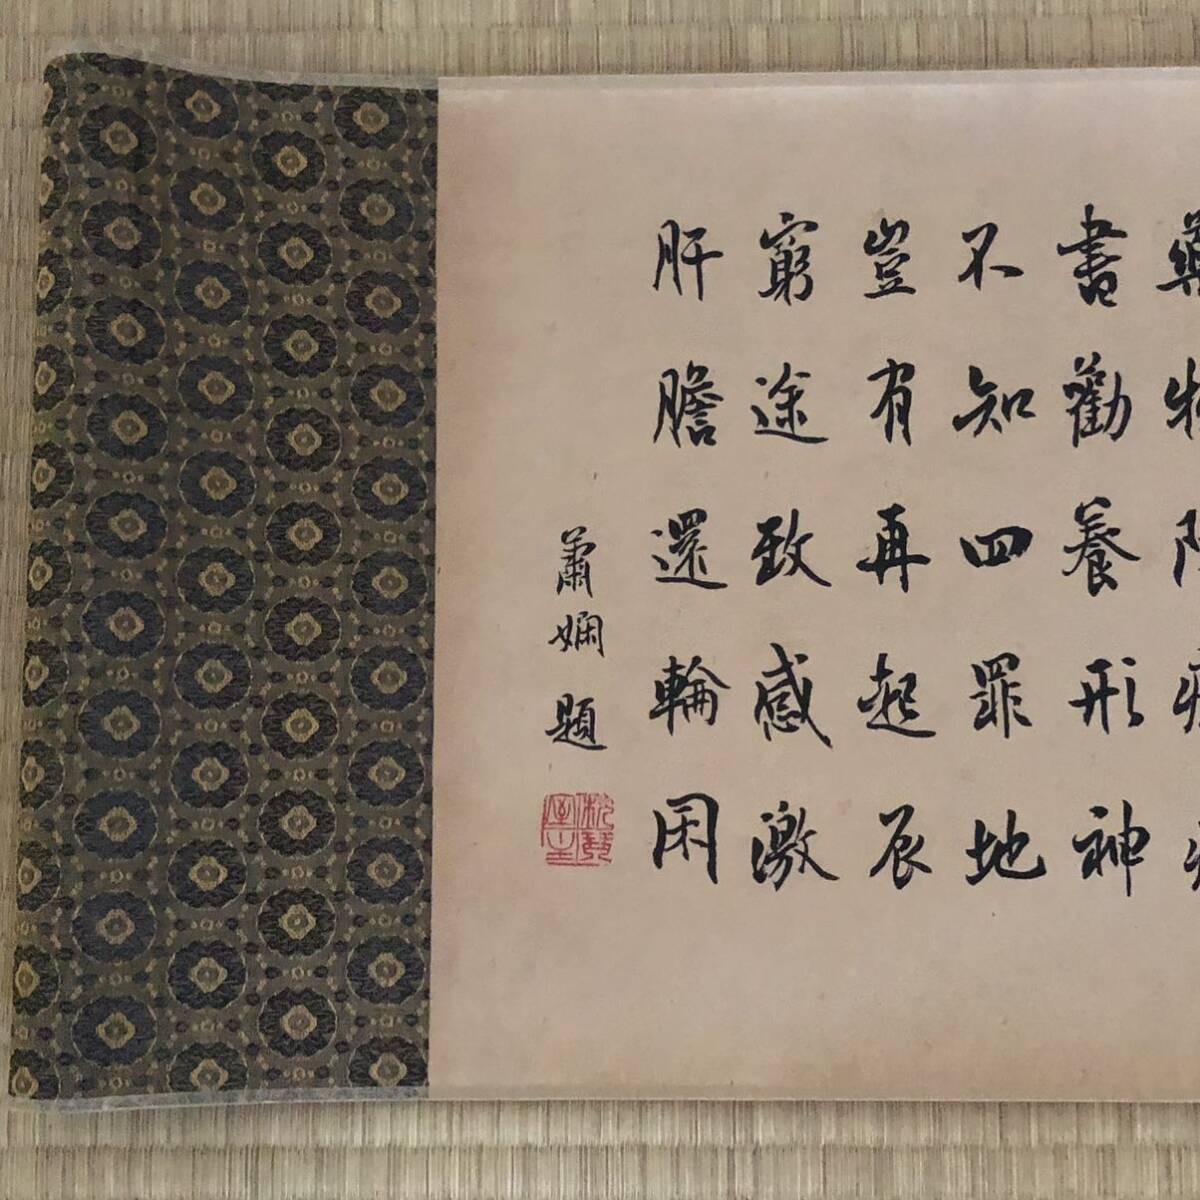 書勸養形神
不知四罪地
豈有再起辰
窮途致感激
肝膽還輪囷
蕭嫻題